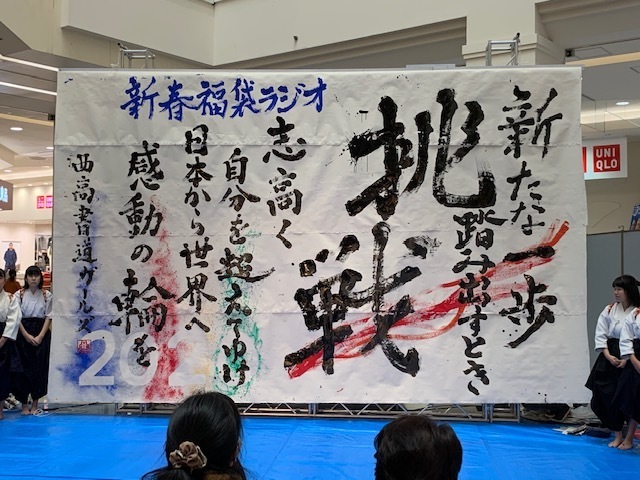 新春福袋ラジオ
新たな一歩
踏み出すとき
挑戦
志高く
自分を超えてゆけ
日本から世界へ
感動の輪を
西高書道ガールズ
202
UNIQLO